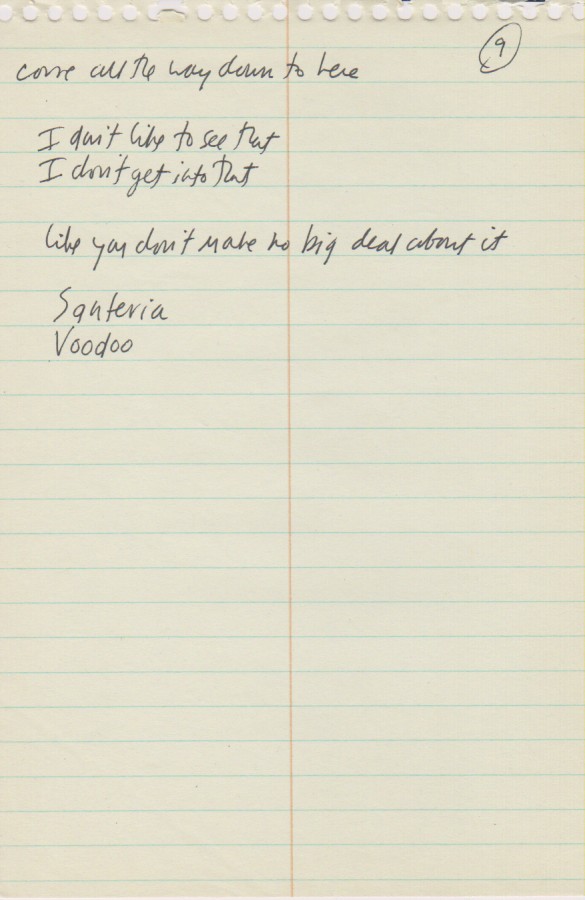 9
come all the way down to here
I don't like to see that
I don't get into that
like you don't make no big deal about it
Santeria
Voodoo